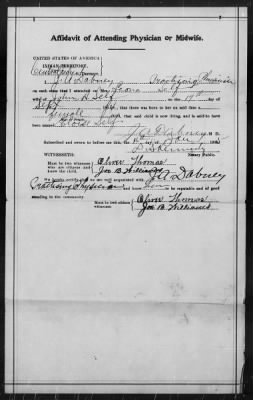 Affidavit of Attending Physician or Midwife.
UNITED STATES OF AMERICA
INDIAN TERRITORY,
I, J A Dabney, Practising Physician
on oath state that I attended on Leona Self
wife of John R Self on the 19th day of
Sept, that there was born to her on said date a
female child; that said child is now living, and is said to have
been named Self
J. A Dabney
Subscribed and sworn to before me this day of 190
Notary Public.
Must be two witnesses who are citizens and know the child.
Oliver Thomas
Joe B Williams
We hereby certify that we are well acquainted with J A Dabney
Practising Physician and know to be reputable and of good
standing in the community.
Must be two citizen witnesses.
Oliver Thomas
Joe B. Williams